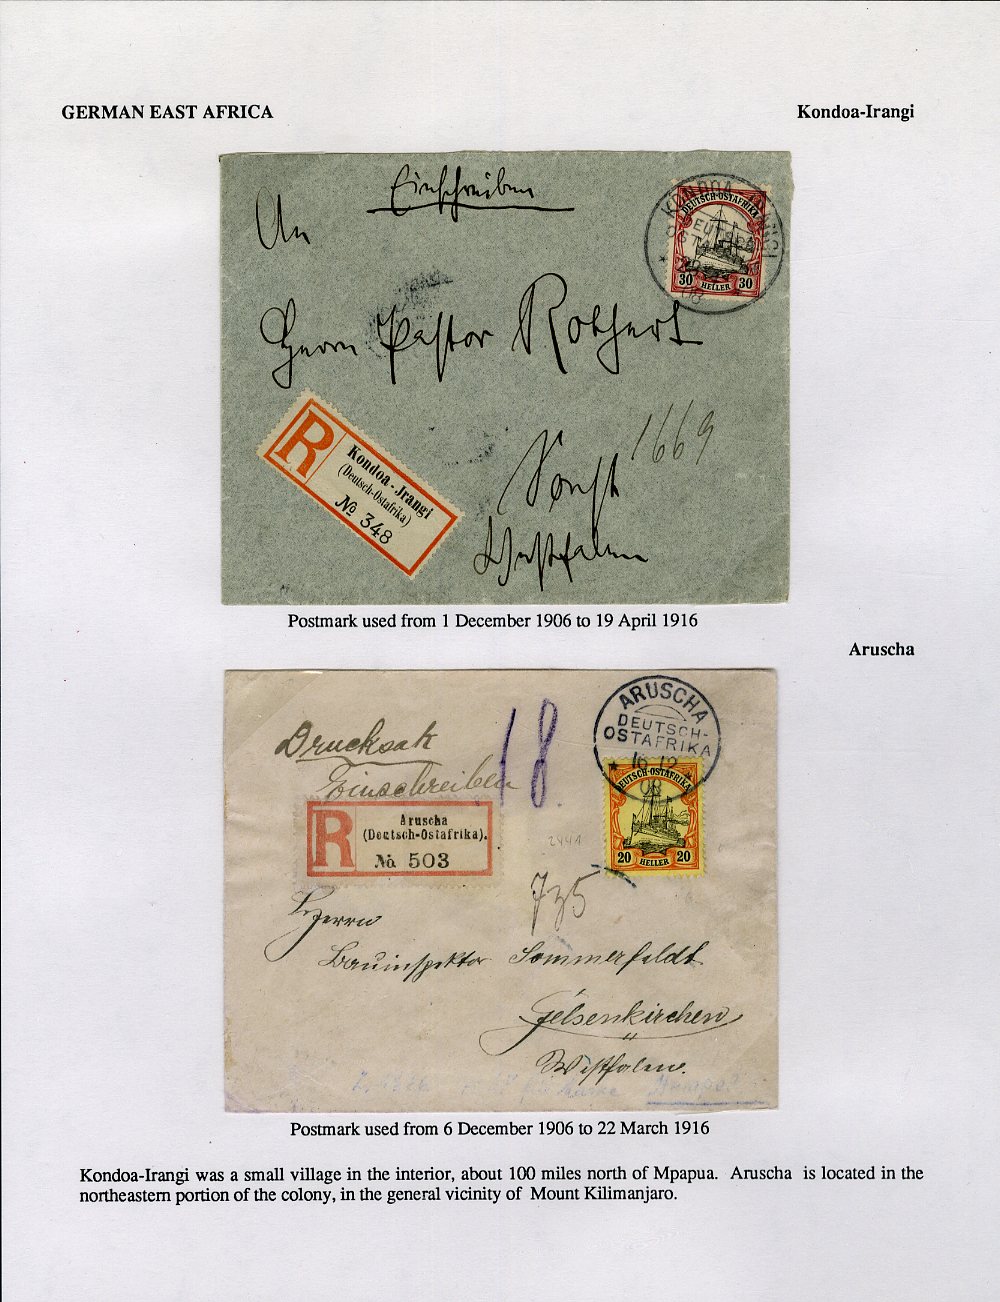 GERMAN EAST AFRICA
Kondoa-Irangi
Einschreiben
An
KONDOA-IRANGI
DEUTSCH-OSTAFRIKA
08
DEUTSCH-OSTAFRIKA
30 HELLER 30
Herrn Pastor Rothert
R
Kondoa-Jrangi
(Deutsch-Ostafrika)
№ 348
1669
Soest
Westfalen
Postmark used from 1 December 1906 to 19 April 1916
Aruscha
Drucksak
Einschreiben
18
ARUSCHA
DEUTSCH-
OSTAFRIKA
16 12
08
DEUTSCH-OSTAFRIKA
20 HELLER 20
R
Aruscha
(Deutsch-Ostafrika).
№ 503
2441
735
Herrn
Bauinspektor Sommerfeldt
Gelsenkirchen
Westfalen.
Postmark used from 6 December 1906 to 22 March 1916
Kondoa-Irangi was a small village in the interior, about 100 miles north of Mpapua. Aruscha is located in the
northeastern portion of the colony, in the general vicinity of Mount Kilimanjaro.